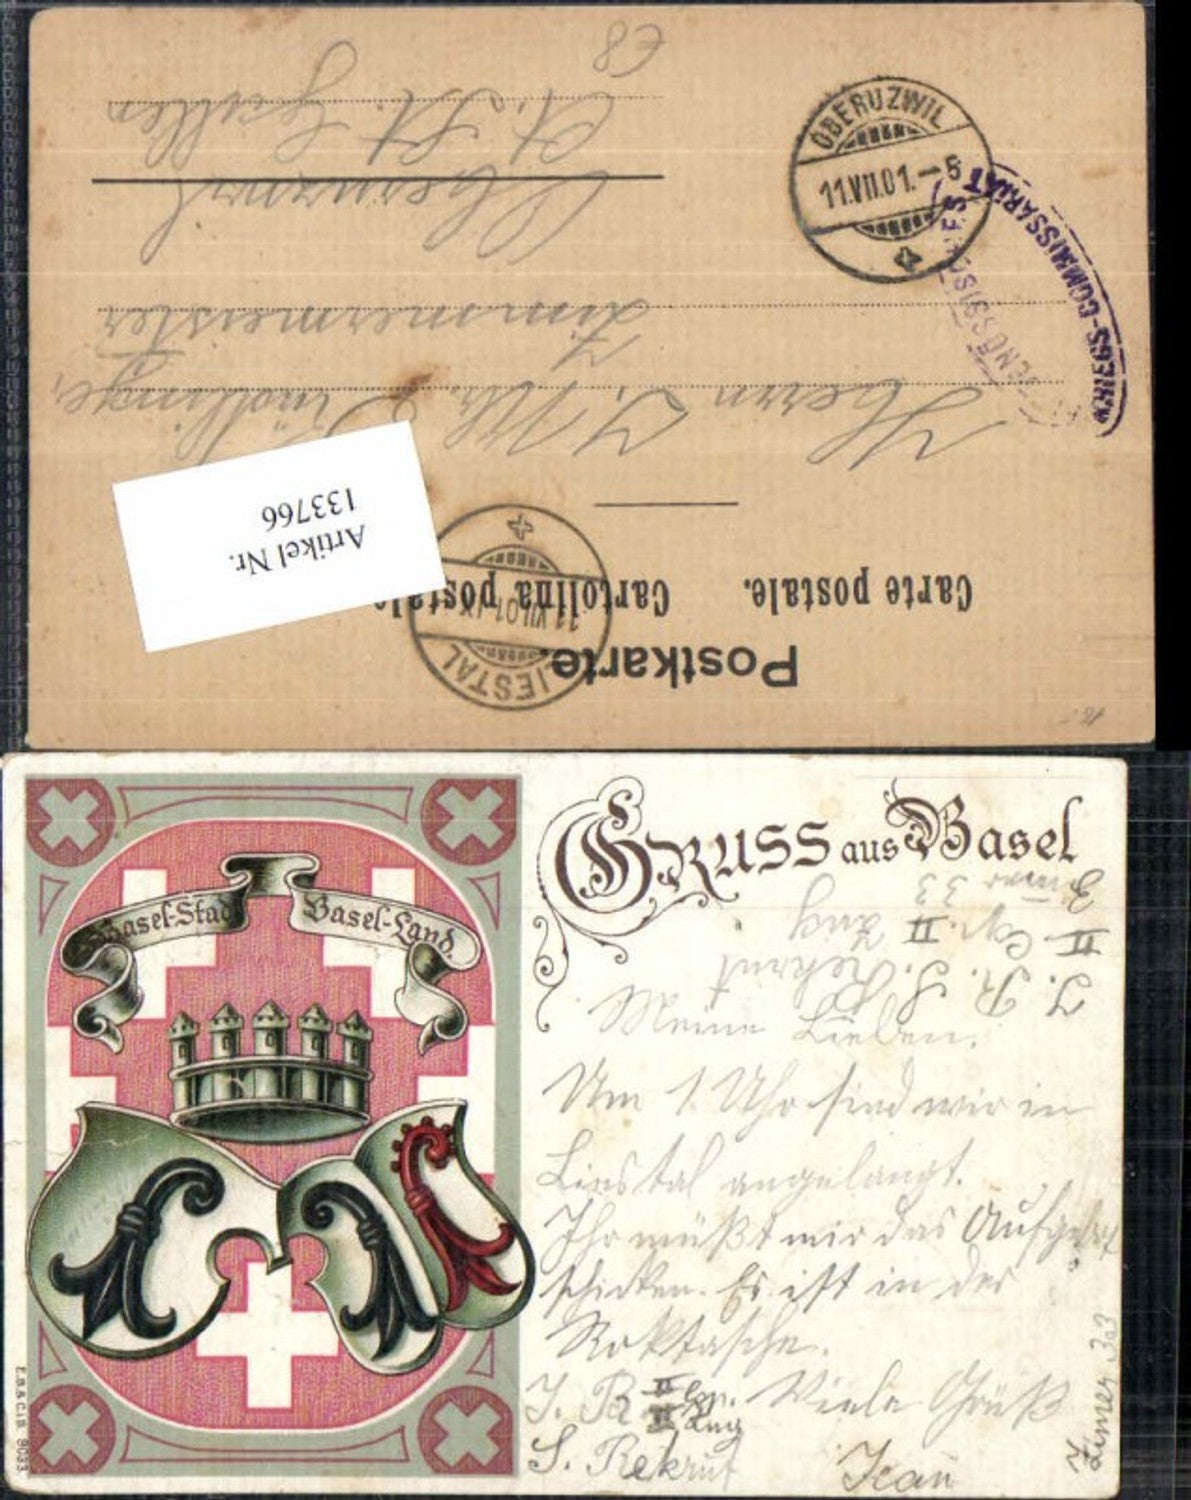 Postkarte.
Carte postale. Cartolina postale.
Artikel Nr.
133766
LIESTAL
11.VII.01.IX
Herrn J.
Zimmermeister
Oberuzwil
Kt. St. Gallen
€8
OBERUZWIL
11.VII.01.-5
KRIEGS-COMMISSARIAT
18.-
GRUSS aus Basel
Basel-Stadt
Basel-Land.
Zimmer 33
II. Cp. II Zug
J. R. S. Rekrut
Meine Lieben.
Um 1 Uhr sind wir in
Liestal angelangt.
Ihr müßt mir das Aufgebot
schicken. Es ist in der
Rocktasche.
J. R. II Cp. Viele Grüß
II Zug
S. Rekrut Jean
Zimer 33
E.B.& C.i.B. 9033